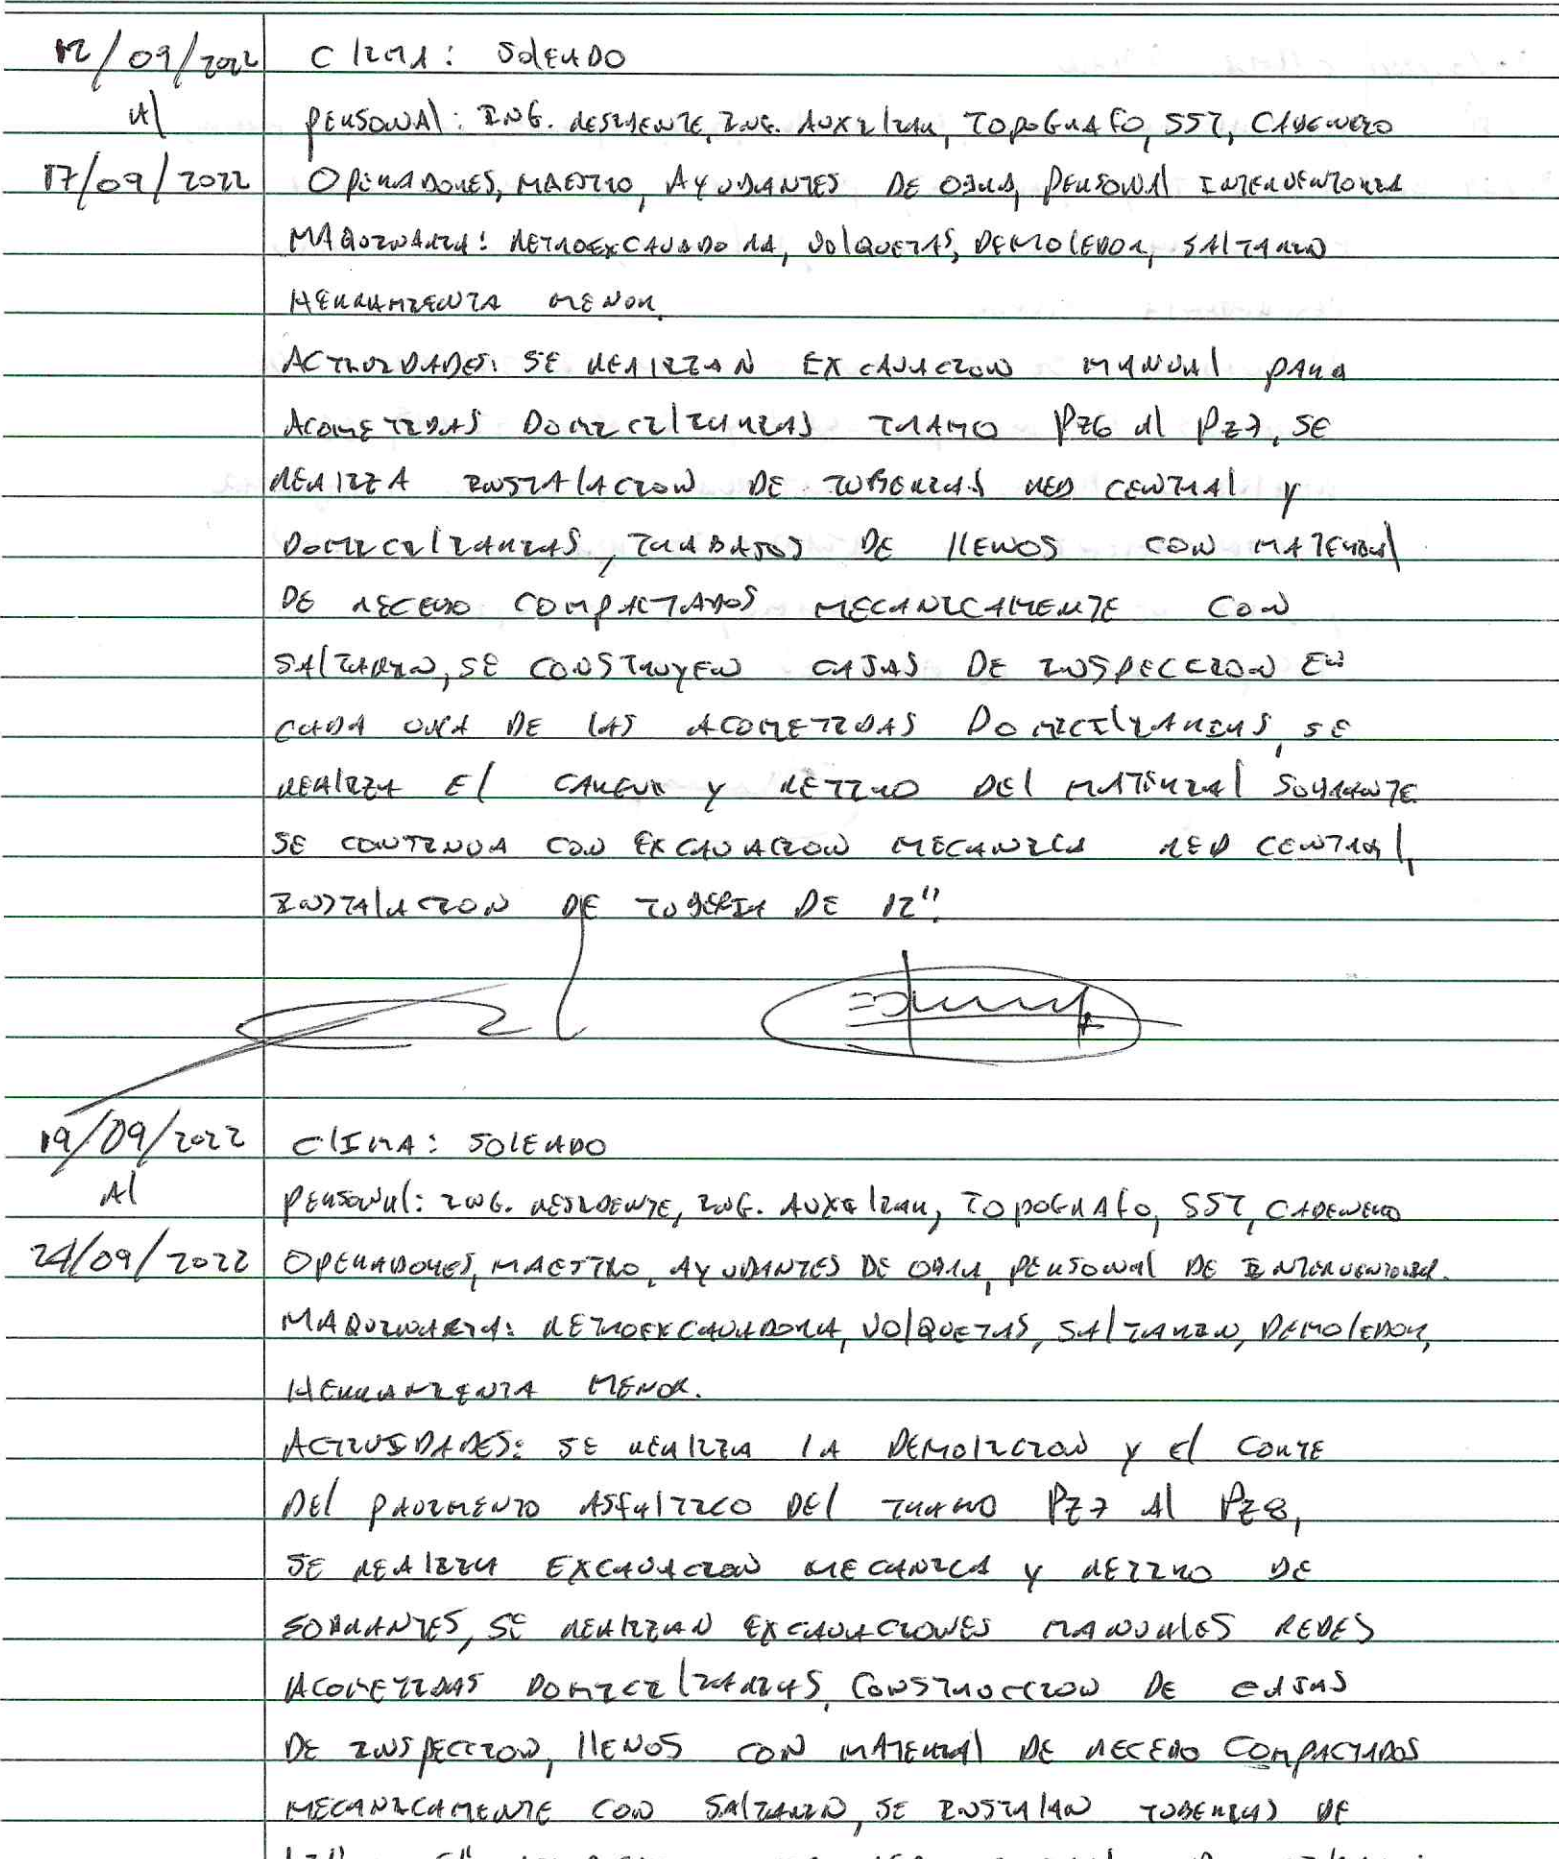 12/09/2022 CLIMA: SOLEADO
Al PERSONAL: ING. RESIDENTE, ING. AUXILIAR, TOPOGRAFO, SST, CADENERO
17/09/2022 OPERADORES, MAESTRO, AYUDANTES DE OBRA, PERSONAL INTERVENTORIA
MAQUINARIA: RETROEXCAVADORA, VOLQUETAS, DEMOLEDOR, SALTARIN
HERRAMIENTA MENOR.
ACTIVIDADES: SE REALIZAN EXCAVACION MANUAL PARA
ACOMETIDAS DOMICILIARIAS TRAMO PZ6 Al PZ7, SE
REALIZA INSTALACION DE TUBERIAS RED CENTRAL Y
DOMICILIARIAS, TRABAJOS DE LLENOS CON MATERIAL
DE RECEBO COMPACTADOS MECANICAMENTE CON
SALTARIN, SE CONSTRUYEN CAJAS DE INSPECCION EN
CADA UNA DE LAS ACOMETIDAS DOMICILIARIAS, SE
REALIZA El CARGUE Y RETIRO DEL MATERIAL SOBRANTE
SE CONTINUA CON EXCAVACION MECANICA RED CENTRAL,
INSTALACION DE TUBERIA DE 12"
19/09/2022 CLIMA: SOLEADO
Al PERSONAL: ING. RESIDENTE, ING. AUXILIAR, TOPOGRAFO, SST, CADENERO
24/09/2022 OPERADORES, MAESTRO, AYUDANTES DE OBRA, PERSONAL DE INTERVENTORIA.
MAQUINARIA: RETROEXCAVADORA, VOLQUETAS, SALTARIN, DEMOLEDOR,
HERRAMIENTA MENOR.
ACTIVIDADES: SE REALIZA LA DEMOLICION Y El CORTE
DEL PAVIMENTO ASFALTICO DEL TRAMO PZ7 Al PZ8,
SE REALIZA EXCAVACION MECANICA Y RETIRO DE
SOBRANTES, SE REALIZAN EXCAVACIONES MANUALES REDES
ACOMETIDAS DOMICILIARIAS, CONSTRUCCION DE CAJAS
DE INSPECCION, LLENOS CON MATERIAL DE RECEBO COMPACTADOS
MECANICAMENTE CON SALTARIN, SE INSTALAN TUBERIAS DE